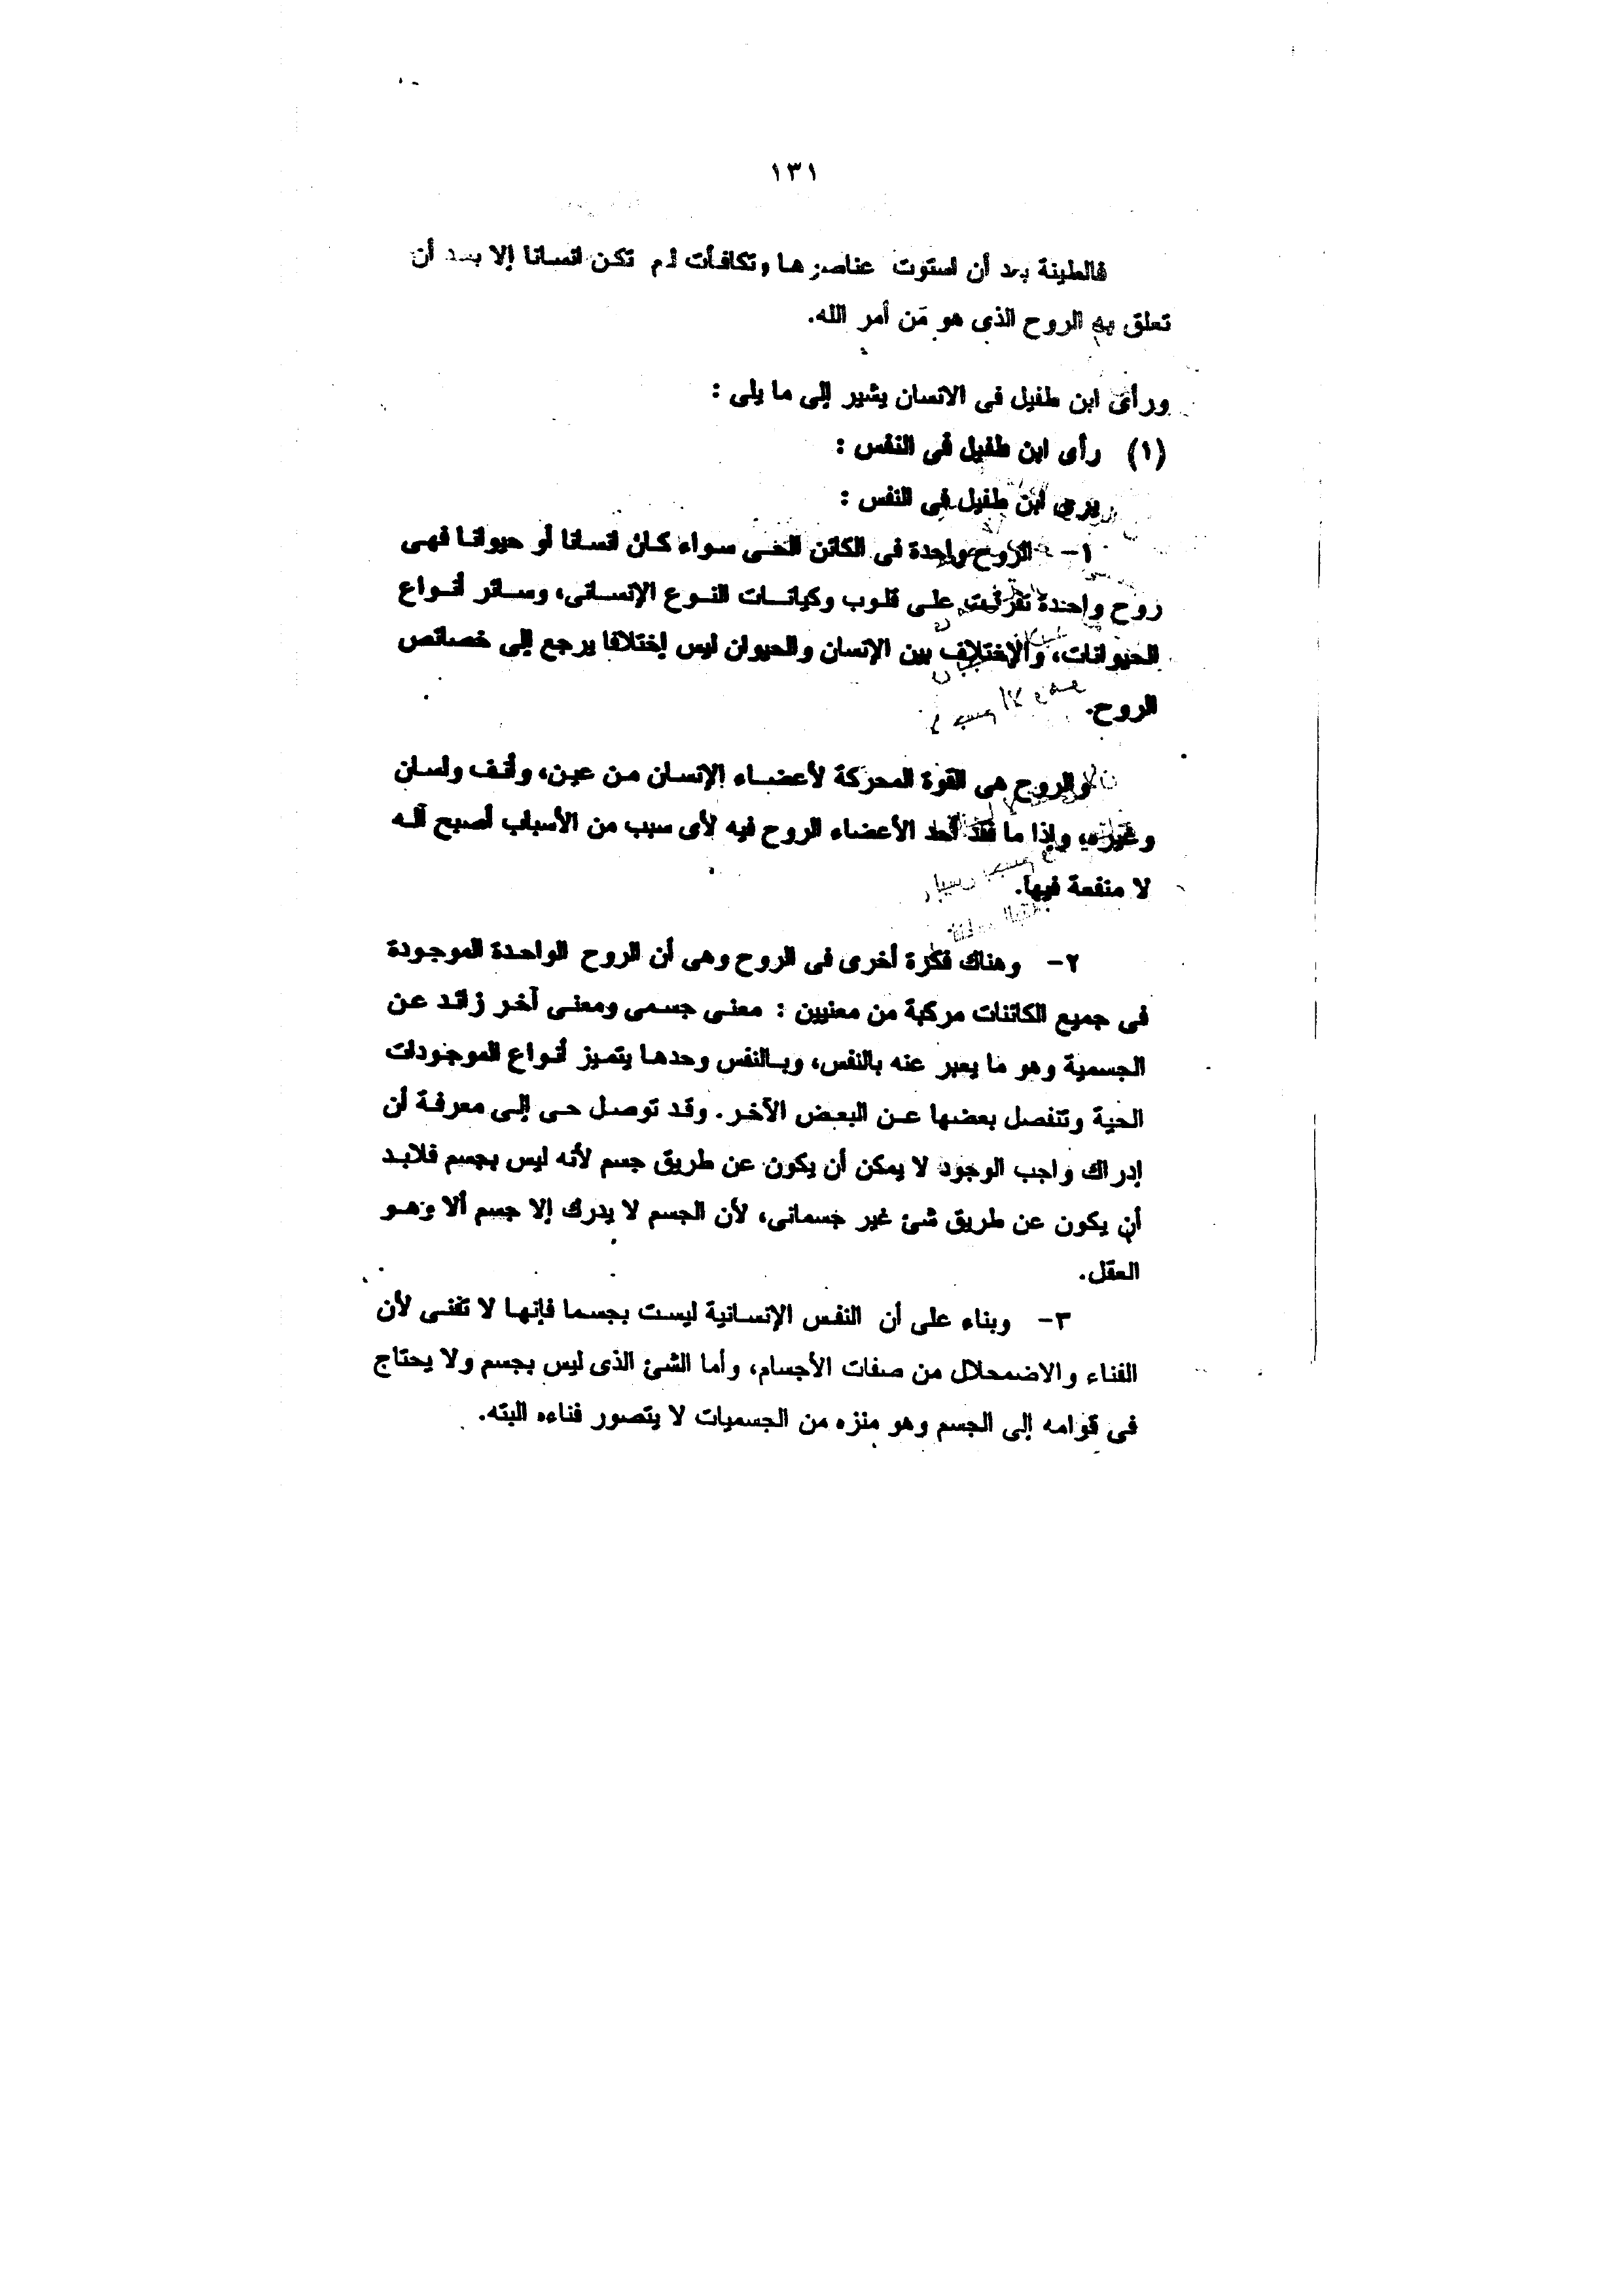 ١٣١
فالطينة بعد أن استوت عناصرها وتكافأت لم تكن انسانا إلا بعد أن
تعلق به الروح الذى هو من أمر الله.
ورأى ابن طفيل فى الانسان يشير إلى ما يلى :
(١) رأى ابن طفيل فى النفس :
يرى ابن طفيل فى النفس :
١- الروح واحدة فى الكائن الحى سواء كان انسانا أو حيوانا فهى
روح واحدة تفرقت على قلوب وكيانات النوع الإنسانى، وسائر أنواع
الحيوانات، والإختلاف بين الإنسان والحيوان ليس إختلافا يرجع إلى خصائص
الروح.
والروح هى القوة المحركة لأعضاء الإنسان من عين، وأنف ولسان
وغيره، وإذا ما فقد أحد الأعضاء الروح فيه لأى سبب من الأسباب أصبح آله
لا منفعة فيها.
٢- وهناك فكرة أخرى فى الروح وهى أن الروح الواحدة الموجودة
فى جميع الكائنات مركبة من معنيين : معنى جسمى ومعنى آخر زائد عن
الجسمية وهو ما يعبر عنه بالنفس، وبالنفس وحدها يتميز أنواع الموجودات
الحية وتنفصل بعضها عن البعض الآخر. وقد توصل حى إلى معرفة أن
إدراك واجب الوجود لا يمكن أن يكون عن طريق جسم لأنه ليس بجسم فلابد
أن يكون عن طريق شئ غير جسمانى، لأن الجسم لا يدرك إلا جسم ألا وهو
العقل.
٣- وبناء على أن النفس الإنسانية ليست بجسما فإنها لا تفنى لأن
الفناء والاضمحلال من صفات الأجسام، وأما الشئ الذى ليس بجسم ولا يحتاج
فى قوامه إلى الجسم وهو منزه من الجسميات لا يتصور فناءه البته.